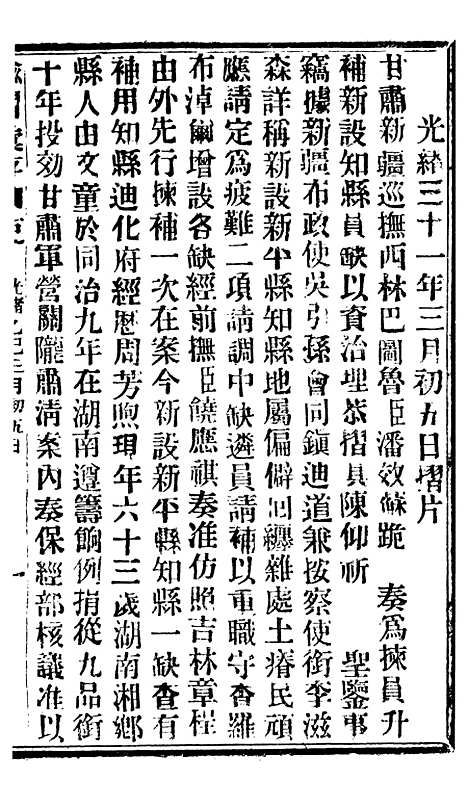 光緒三十一年三月初九日摺片
甘肅新疆巡撫西林巴圖魯臣潘效蘇跪　奏爲揀員升
補新設知縣員缺以資治理恭摺具陳仰祈　聖鑒事
竊據新疆布政使吳引孫會同鎭迪道兼按察使銜李滋
森詳稱新設新平縣知縣地屬偏僻回纏雜處土瘠民頑
應請定爲疲難二項請調中缺遴員請補以重職守查羅
布淖爾增設各缺經前撫臣饒應祺奏准仿照吉林章程
由外先行揀補一次在案今新設新平縣知縣一缺查有
補用知縣迪化府經歷周芳煦現年六十三歲湖南湘鄉
縣人由文童於同治九年在湖南遵籌餉例捐從九品銜
十年投効甘肅軍營關隴肅清案內奏保經部核議准以
光緒乙巳三月初九日　一